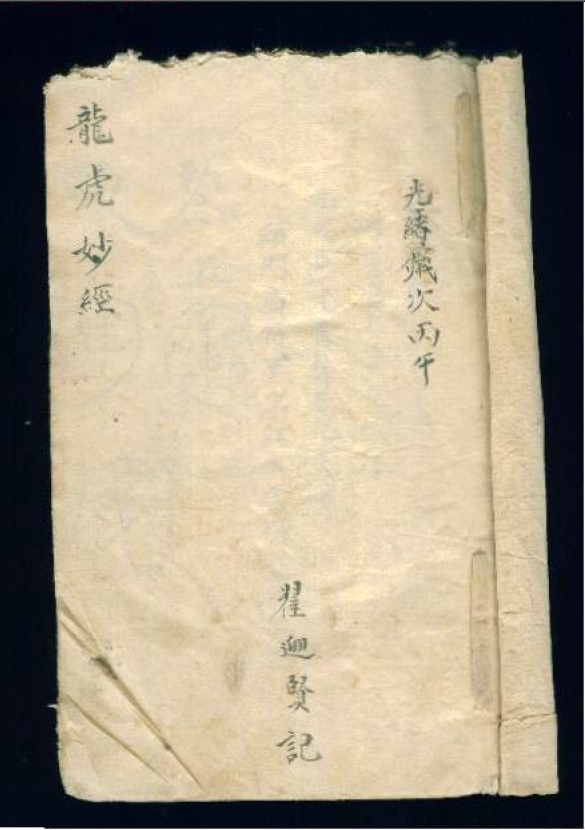 光緒歲次丙午
翟迴賢記
龍虎妙經